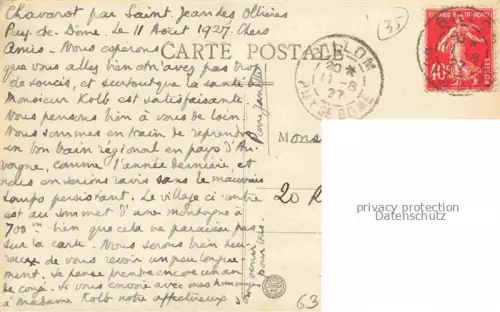 Chavarot par Saint-Jean des Ollières
Puy-de-Dôme. le 11 Août 1927. Chers
Amis - Nous espérons
CARTE POSTALE
que vous allez bien et n'avez pas trop
de soucis, et surtout que la santé de
Monsieur Kolb est satisfaisante.
Nous pensons bien à vous de loin.
Nous sommes en train de reprendre
un bon bain régional en pays d'Au-
vergne, comme l'année dernière, et
nous en serions ravis sans le mauvais
temps persistant. Le village ci-contre
est au sommet d'une montagne à
700m bien que cela ne paraisse pas
sur la carte. Nous serons bien heu-
reux de vous revoir un peu longue-
ment. Je pense prendre encore un an
de congé. Je vous envoie avec mes hommages
à Madame Kolb notre affectueux
souvenir
pour tous.
35
BILLOM
20 *
11 - 8
27
PUY DE DOME
40c
Mons
20 R
63
privacy protection
Datenschutz